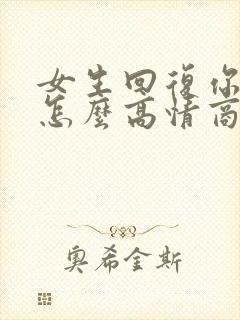 女生回復你
怎麼高情商
奧希金斯